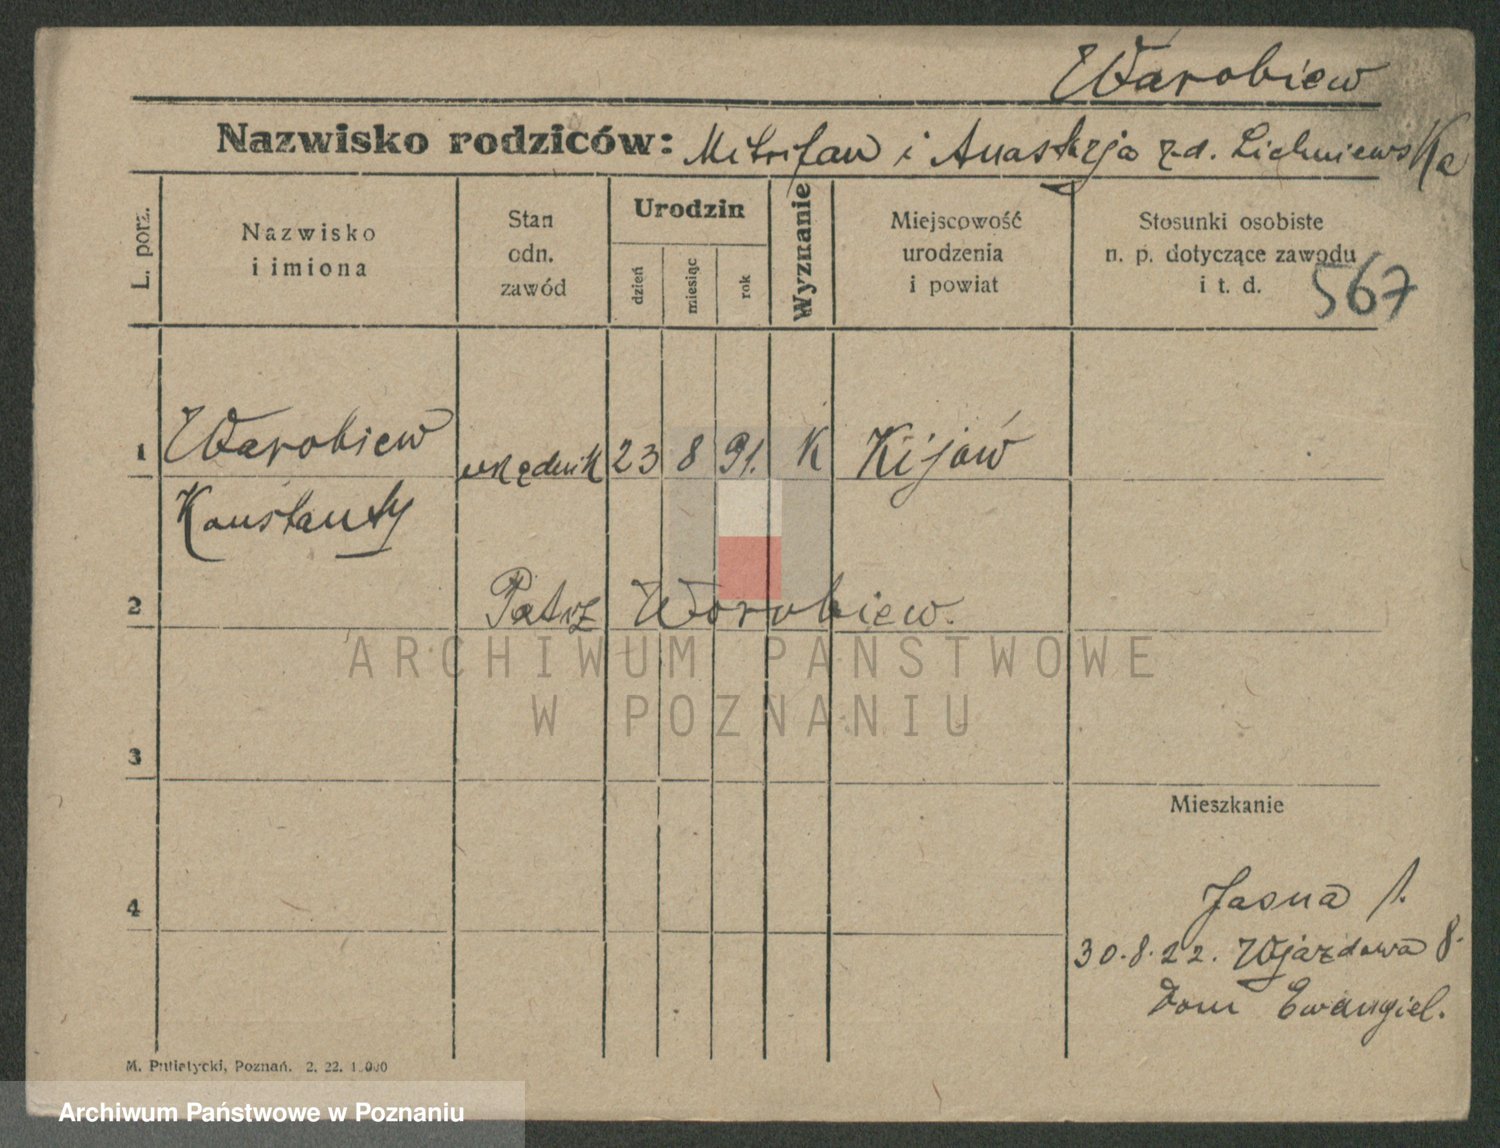 Warobiew
Nazwisko rodziców: Mitrifan i Anastazja z d. Lichniewska
L. porz.
Nazwisko
i imiona
Stan
odn.
zawód
Urodzin
dzień
miesiąc
rok
Wyznanie
Miejscowość
urodzenia
i powiat
Stosunki osobiste
n. p. dotyczące zawodu
i t. d.
567
1 Warobiew urzędnik 23 8 91. K Kijów
Konstanty
2 Patrz Worobiew.
ARCHIWUM PAŃSTWOWE
W POZNANIU
3
Mieszkanie
4
Jasna 1.
30.8.22. Wjazdowa 8.
Dom Ewangiel.
M. Putiatycki, Poznań. 2. 22. 1.000
Archiwum Państwowe w Poznaniu